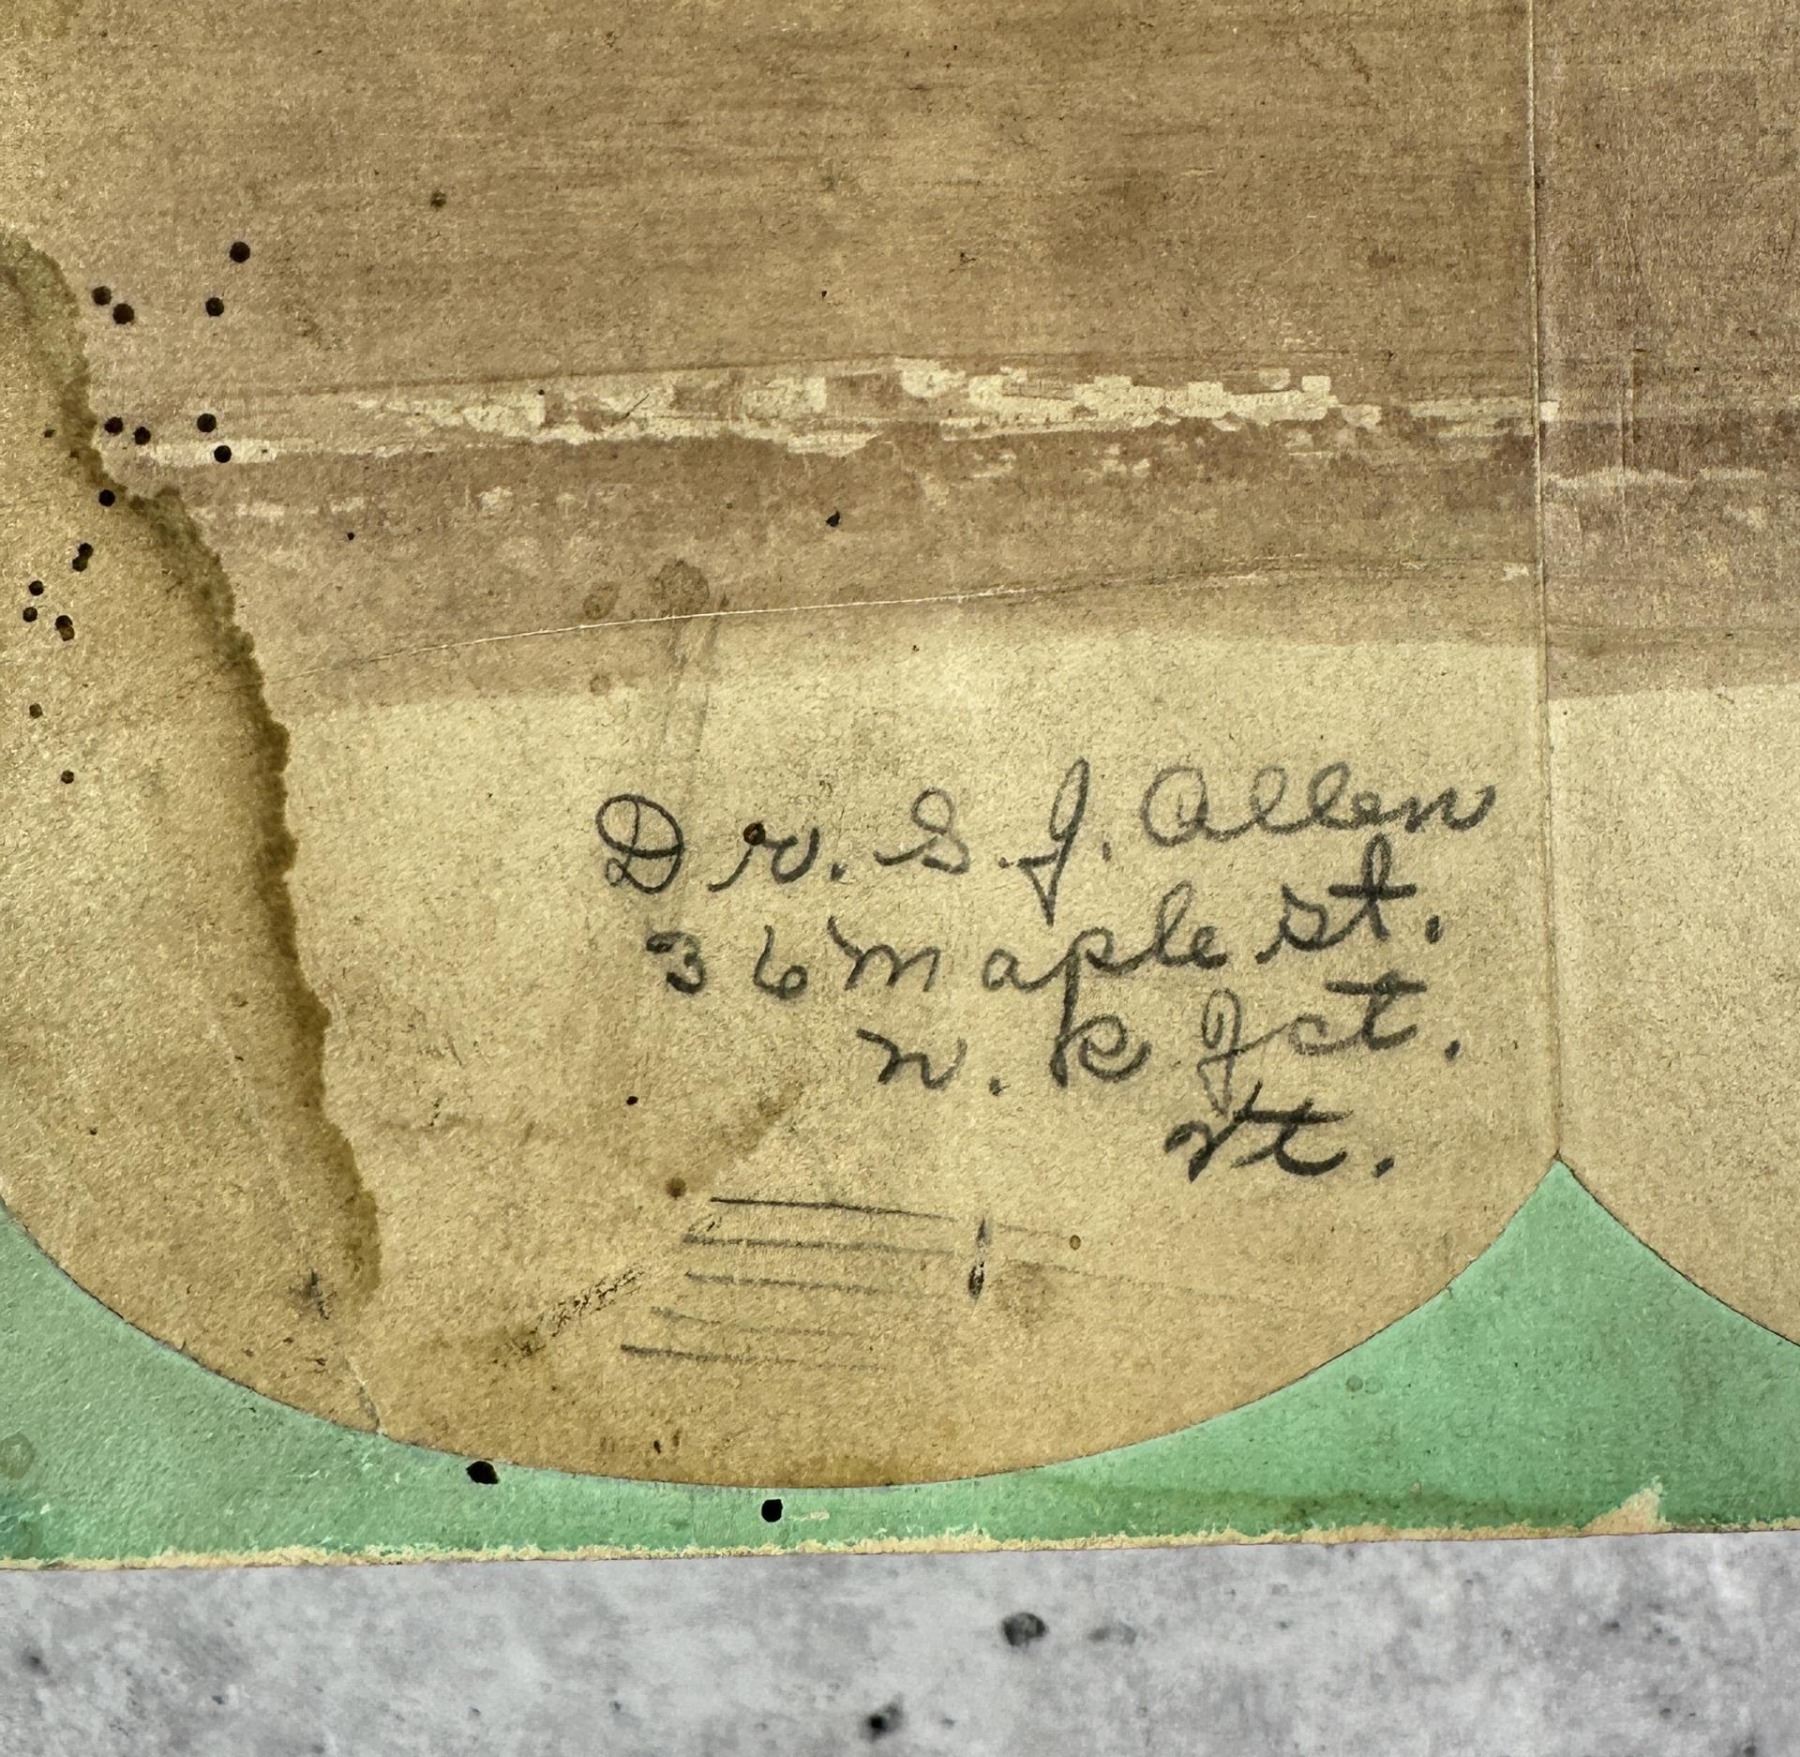 Dr. S. J. Allen
36 Maple St.
W. R Jct.
Vt.